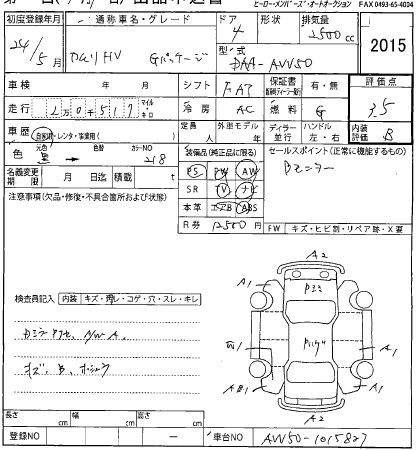 ヒーロー・メンバーズ・オートオークション FAX 0493-65-4004
初度登録年月 通称車名・グレード ドア 形状 排気量
24年5月 カムリHV Gパッケージ 4 2500cc 2015
型式 DAA-AVV50
車検 年 月 シフト FAT 保証書 有・無 評価点
走行 2万0517 マイル キロ 冷房 AC 燃料 G 3.5
車歴 自家用・レンタ・事業用( ) 定員 人 外車モデル 年 ディーラー 並行 ハンドル 左・右 内装評価 B
色 元色 黒 → 色替 カラーNO 218 装備品(純正品に限る) セールスポイント(正常に機能するもの)
PS PW AW Bモニター
名義変更期限 月 日迄 積載 t SR TV ナビ
注意事項(欠品・修復・不具合箇所および状態) 本革 エアB ABS
R券 12500円 FW キズ・ヒビ割・リペア跡・X要
検査員記入 内装 キズ・汚れ・コゲ・穴・スレ・キレ
A2
A1 A1
A1
AB1 A1
A2
キズ、B、
長さ cm 幅 cm 高さ cm
登録NO － 車台NO AVV50-1015827